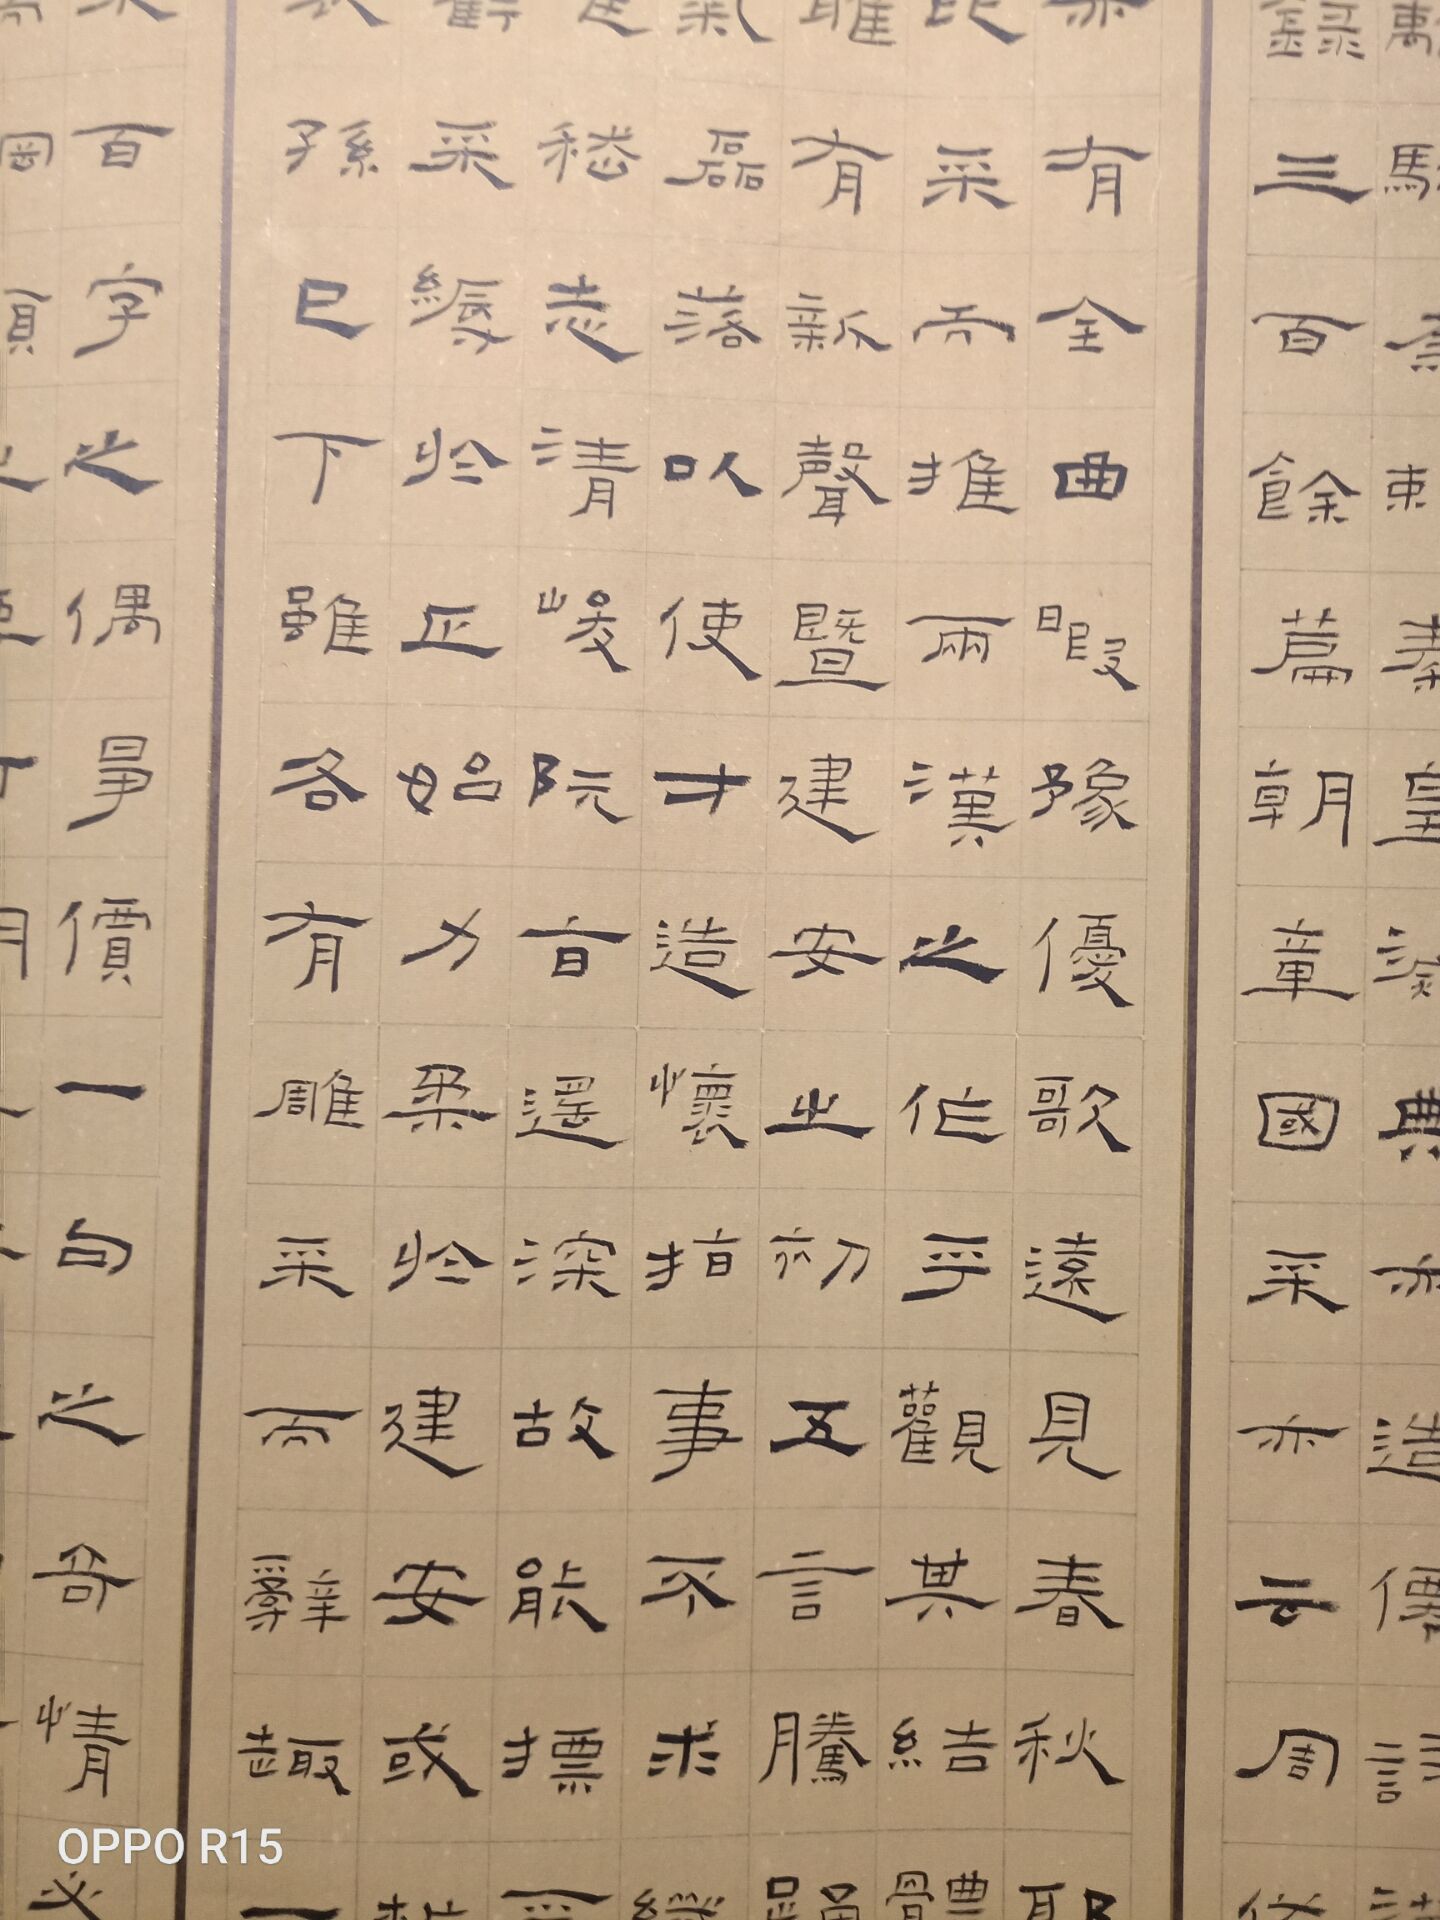 騑 為 束 秦 皇 典 亦 造
錄 三 百 餘 篇 朝 章 國 采 亦 云 周
有 全 曲 暇 豫 優 歌 遠 見 春 秋
比 采 而 推 兩 漢 之 作 乎 觀 其 結 體
唯 有 新 聲 暨 建 安 之 初 五 言 騰 踊
氣 磊 落 以 使 才 造 懷 指 事 不 求 纖
嵇 志 清 峻 阮 旨 遙 深 故 能 摽 焉
采 縟 於 正 始 力 柔 於 建 安 或
孫 已 下 雖 各 有 雕 采 而 辭 趣 一
百 字 之 偶 爭 價 一 句 之 奇 情 必
OPPO R15